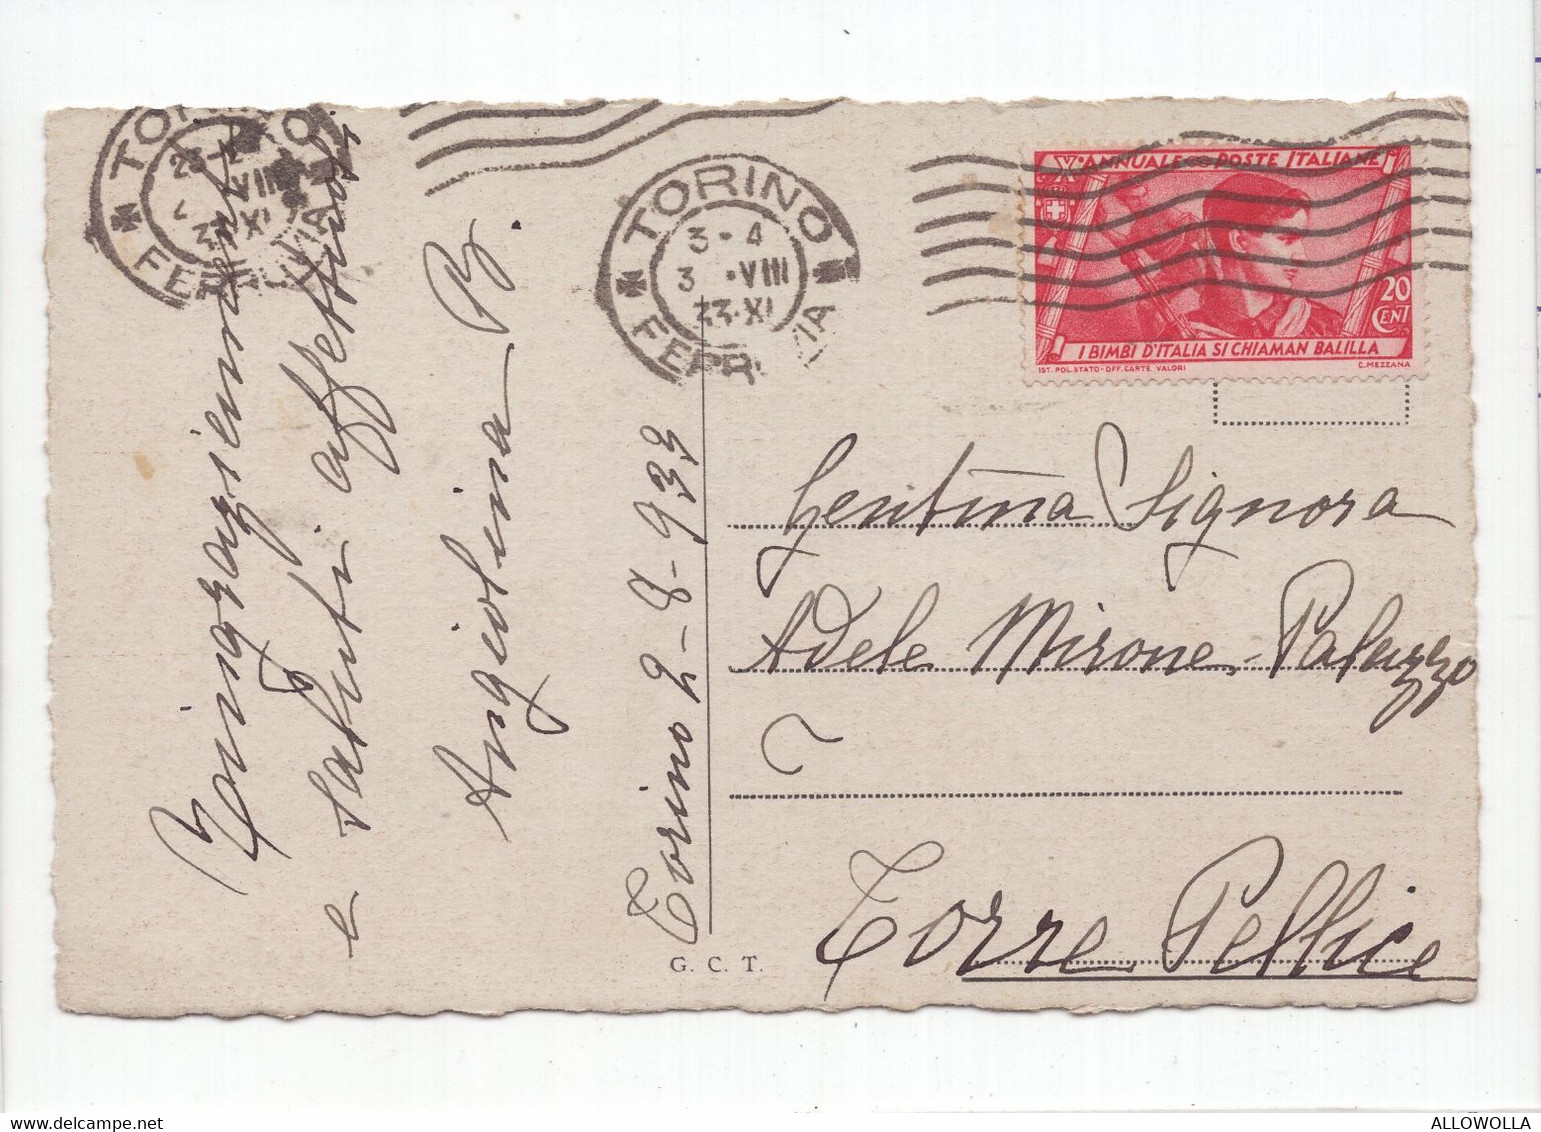 TORINO
23-24
VIII
33.XI
FERROVIA
TORINO
3-4
3.VIII
33.XI
FERROVIA
X° ANNUALE POSTE ITALIANE
20 CENT
I BIMBI D'ITALIA SI CHIAMAN BALILLA
IST. POL. STATO - OFF. CARTE VALORI
C. MEZZANA
Torino 2-8-933
Ringraziamenti
e saluti affettuosi
Angiolina B.
Gentma Signora
Adele Mirone Palazzo
Torre Pellice
G. C. T.
ALLOWOLLA